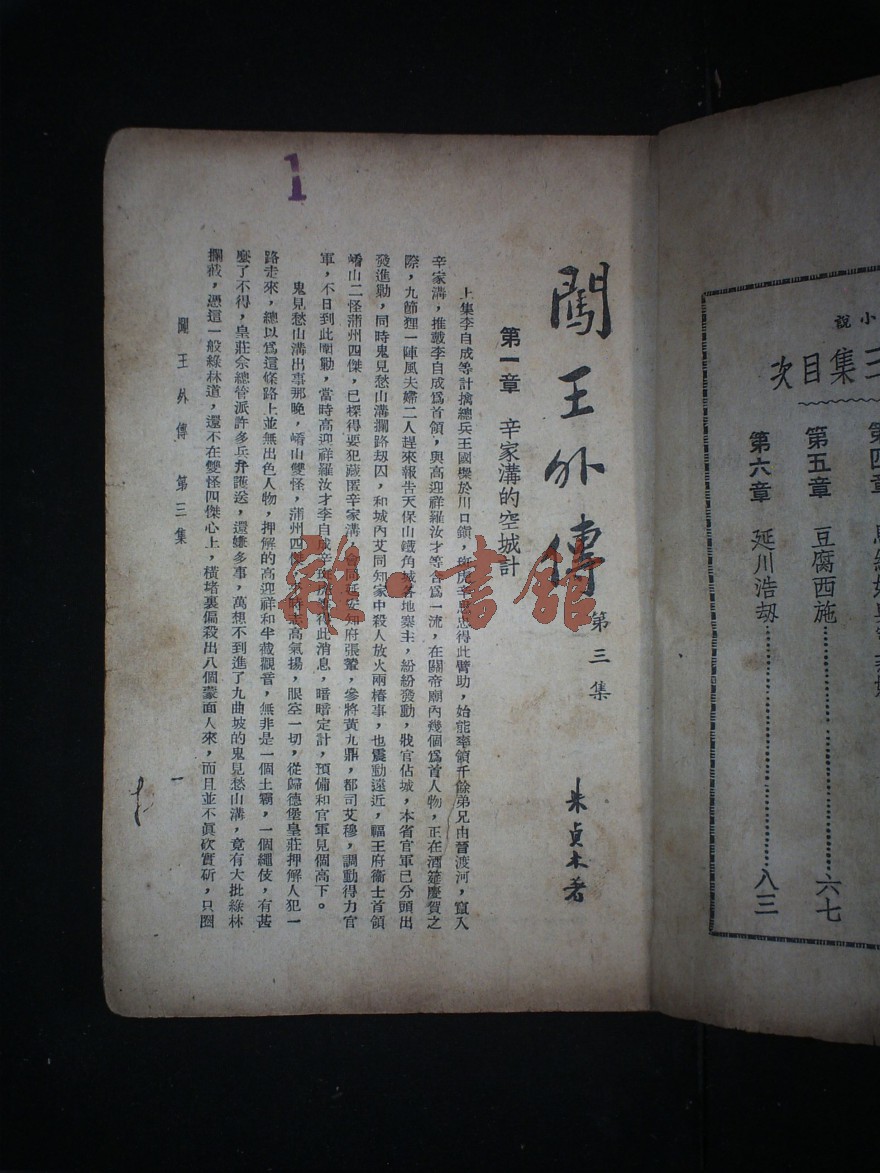 小說
三集目次
第四章
第五章 豆腐西施……………………六七
第六章 延川浩劫……………………八三
1
闖王外傳 第三集
朱貞木著
第一章 辛家溝的空城計
上集李自成等計擒總兵王國樑於川口鎮,斑虎辛思忠得此臂助,始能率領千餘弟兄由晉渡河,竄入
辛家溝,推戴李自成爲首領,與高迎祥羅汝才等合爲一流,在關帝廟內幾個爲首人物,正在酒筵慶賀之
際,九節狸一陣風夫婦二人趕來報告天保山鐵角城各地寨主,紛紛發動,戕官佔城,本省官軍已分頭出
發進勦,同時鬼見愁山溝攔路刼囚,和城內艾同知家中殺人放火兩樁事,也震動遠近,福王府衞士首領
崤山二怪蒲州四傑,已探得要犯藏匿辛家溝,會同延安知府張輦,參將黃九鼎,都司艾穆,調動得力官
軍,不日到此圍勦,當時高迎祥羅汝才李自成辛斑虎等得此消息,暗暗定計,預備和官軍見個高下。
鬼見愁山溝出事那晚,崤山雙怪,蒲州四傑,來時志高氣揚,眼空一切,從歸德堡皇莊押解人犯一
路走來,總以爲這條路上並無出色人物,押解的高迎祥和半截觀音,無非是一個土霸,一個繩伎,有甚
麼了不得,皇莊佘總管派許多兵弁護送,還嫌多事,萬想不到進了九曲坡的鬼見愁山溝,竟有大批綠林
攔截,憑這一般綠林道,還不在雙怪四傑心上,橫堵裏偏殺出八個蒙面人來,而且並不眞次實斫,只圈
闖王外傳 第三集
一
雜·書館